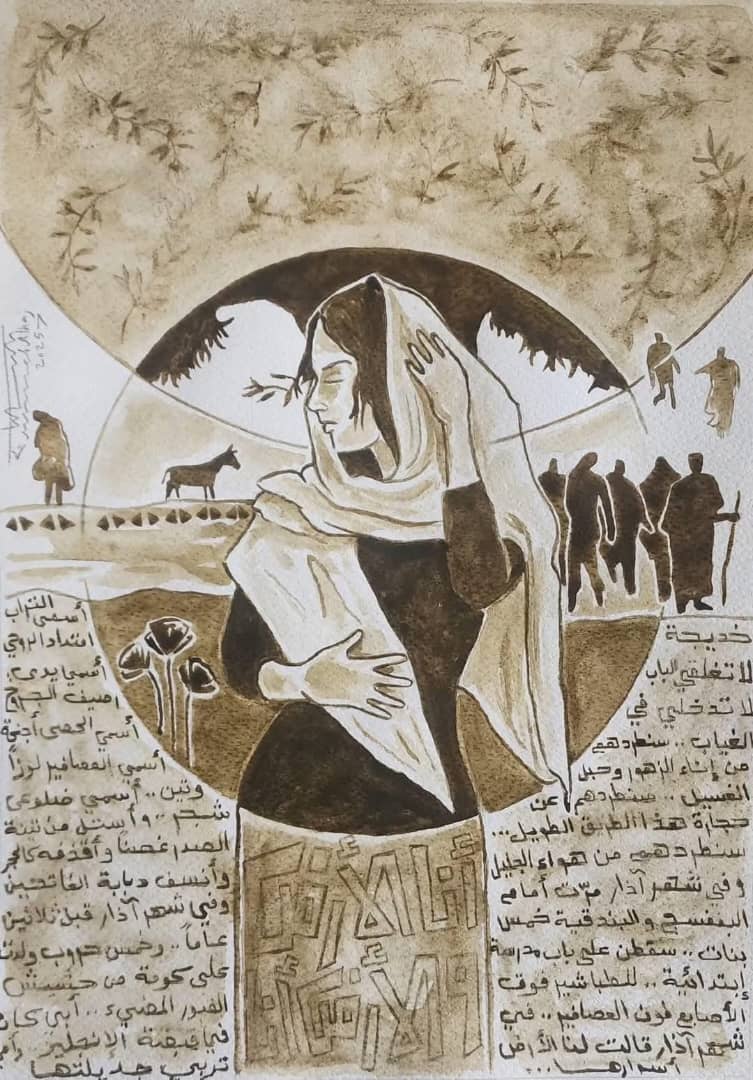 خديجة
لا تغلقي الباب
لا تدخلي في
الغياب .. سنطردهم
من إناء الزهور وحبل
الغسيل .. سنطردهم عن
حجارة هذا الطريق الطويل...
سنطردهم من هواء الجليل
وفي شهر آذار مرّت أمام
البنفسج والبندقية خمس
بنات .. سقطن على باب مدرسة
إبتدائية .. للطباشير فوق
الأصابع لون العصافير .. في
شهر آذار قالت لنا الأرض
أسرارها...
أنا الأرض
أسمي التراب
امتدادا لروحي
أسمي يدي
رصيف الجروح
أسمي الحصى أجنحة
أسمي العصافير لوزاً
وتين .. أسمي ضلوعي
شجر .. وأستل من تينة
الصدر غصناً وأقذفه كالحجر
وأنسف دبابة الفاتحين
وفي شهر آذار قبل ثلاثين
عاماً .. وخمس حروب ولدت
على كومة من حشيش
القبور المضيء .. أبي كان
في قبضة الإنجليز وأمي
تربي جديلتها
2025